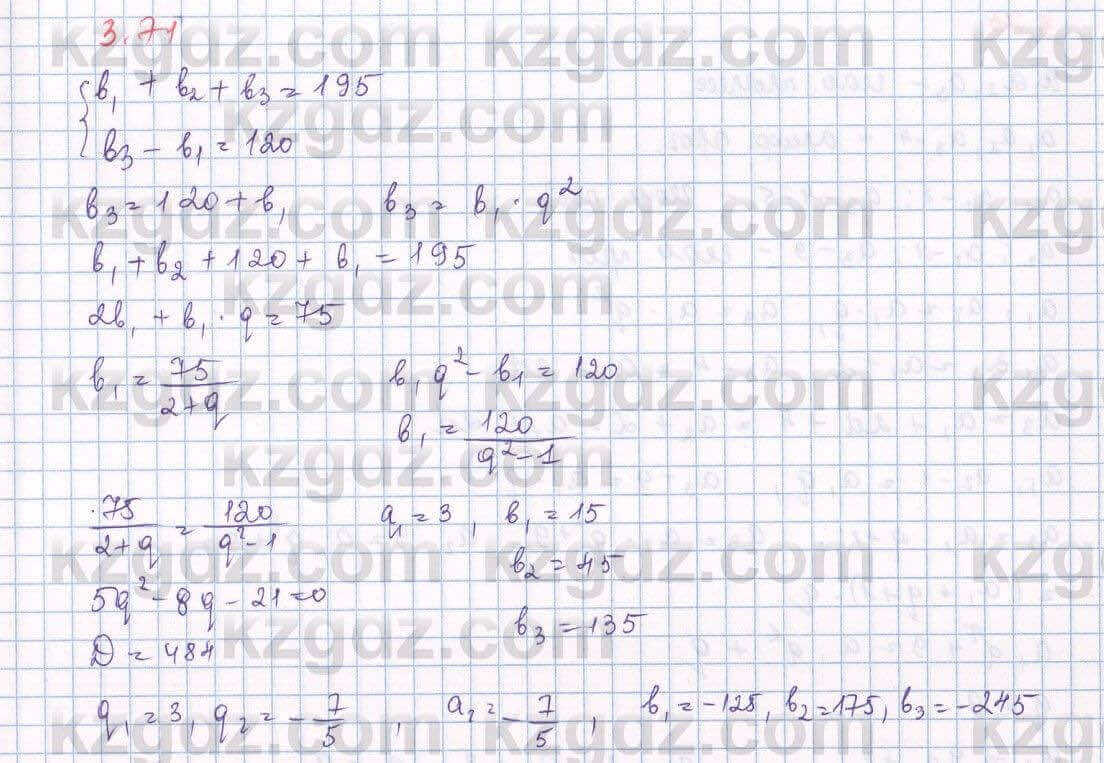 3.71
в₁ + в₂ + в₃ = 195
в₃ - в₁ = 120
в₃ = 120 + в₁ в₃ = в₁ · q²
в₁ + в₂ + 120 + в₁ = 195
2в₁ + в₁ · q = 75
в₁ = 75/(2+q) в₁q² - в₁ = 120
в₁ = 120/(q²-1)
75/(2+q) = 120/(q²-1) q₁ = 3, в₁ = 15
в₂ = 45
5q² - 8q - 21 = 0
в₃ = 135
D = 484
q₁ = 3, q₂ = -7/5, q₂ = -7/5, в₁ = -125, в₂ = 175, в₃ = -245
kzgdz.com